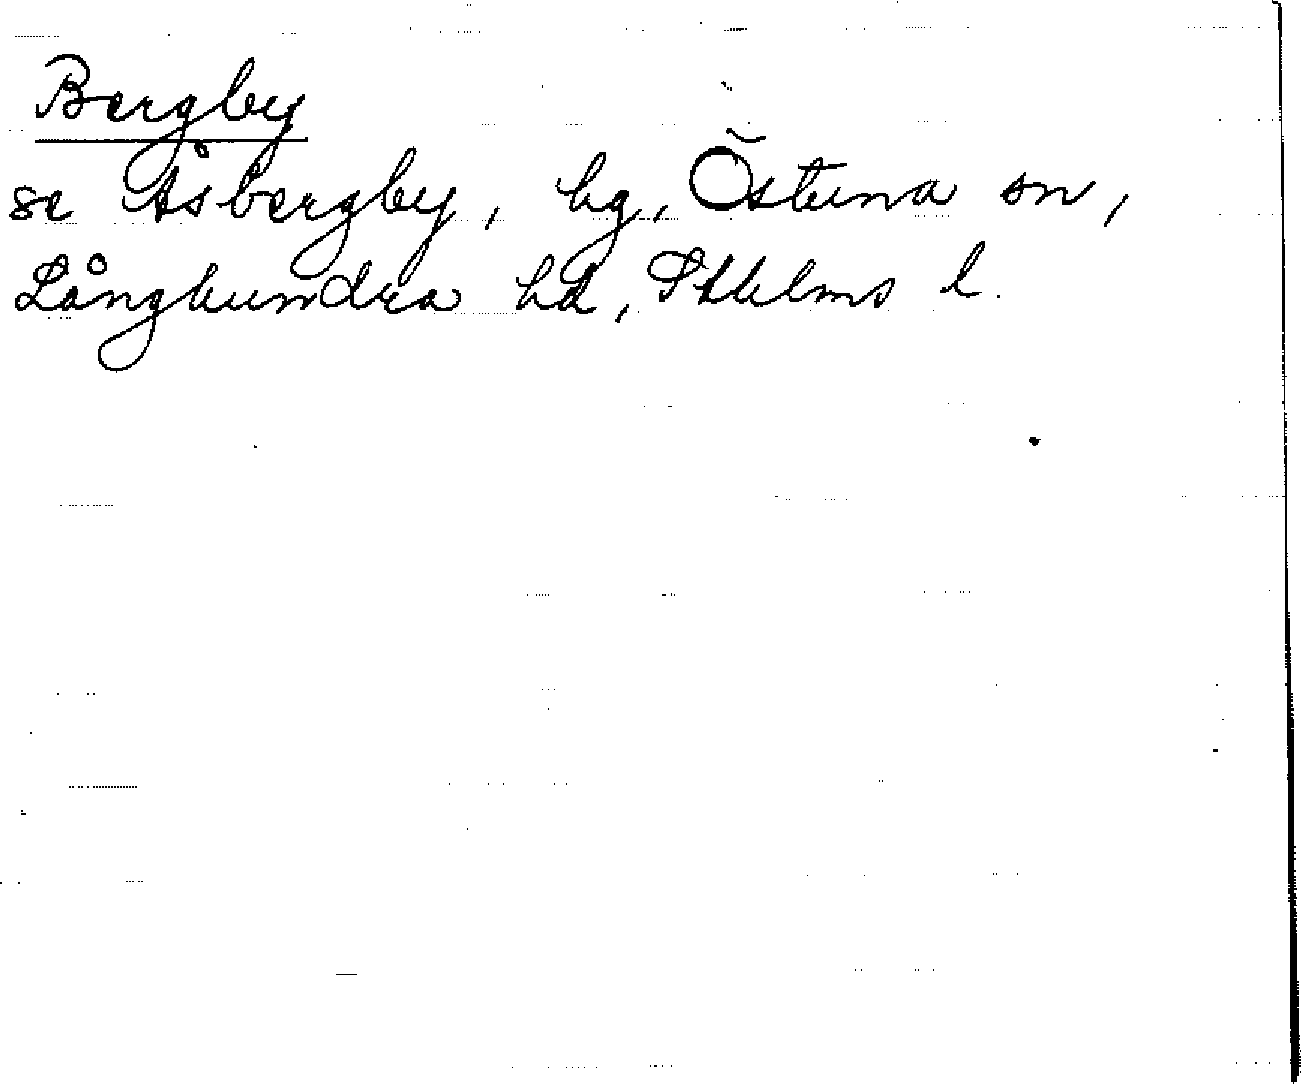 Bergby
se Åsbergby, hg, Östuna sn,
Långhundra hd, Sthlms l.